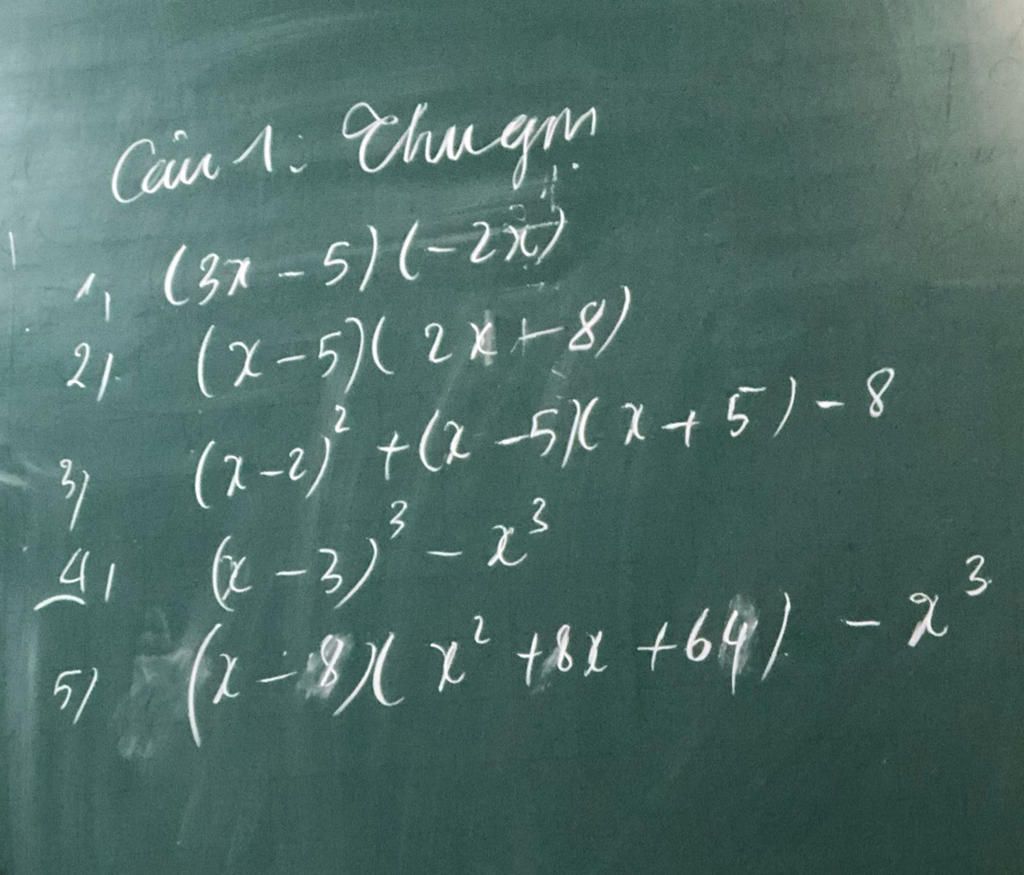 Câu 1: Thu gọn
1, (3x - 5)(-2x)
2). (x - 5)(2x + 8)
3) (x - 2)² + (x - 5)(x + 5) - 8
4, (x - 3)³ - x³
5) (x - 8)(x² + 8x + 64) - x³